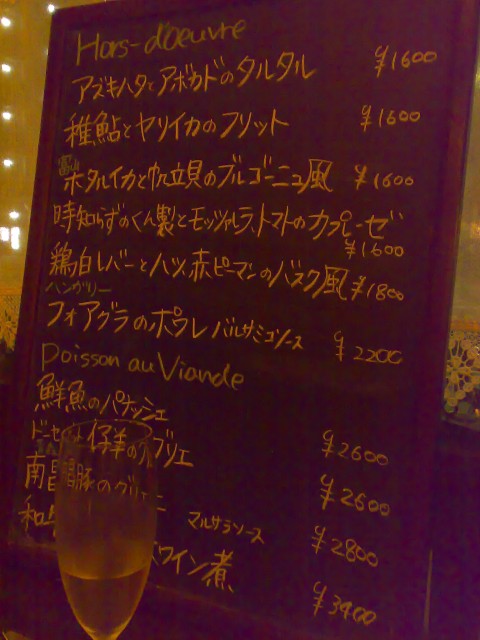 Hors-d'oeuvre
アズキハタとアボカドのタルタル ¥1600
稚鮎とヤリイカのフリット ¥1600
富山
ホタルイカと帆立貝のブルゴーニュ風 ¥1600
時知らずのくん製とモッツァラ、トマトのカプレーゼ
¥1600
鶏白レバーとハツ、赤ピーマンのバスク風 ¥1800
ハンガリー
フォアグラのポワレ バルサミコソース ¥2200
Poisson au Viande
鮮魚のパナッシェ ¥2600
仔羊の ブリエ ¥2600
南 豚のグリエ マルサラソース ¥2800
和牛 ワイン煮 ¥3400